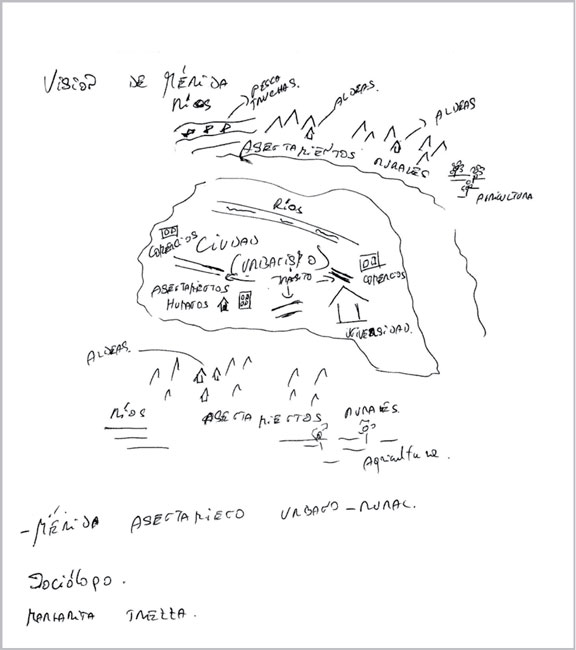 VISIÓN DE MÉRIDA
RÍOS
PESCA
TRUCHAS.
ALDEAS.
ALDEAS
ASENTAMIENTOS RURALES
APICULTURA
RÍOS
COMERCIOS
CIUDAD
(URBANISMO)
VIASTO
COMERCIOS
ASENTAMIENTOS
HUMANOS
UNIVERSIDAD.
ALDEAS.
RÍOS
ASENTAMIENTOS RURALES.
Agricultura.
- MÉRIDA ASENTAMIENTO URBANO-RURAL.
SOCIÓLOGO.
MARGARITA